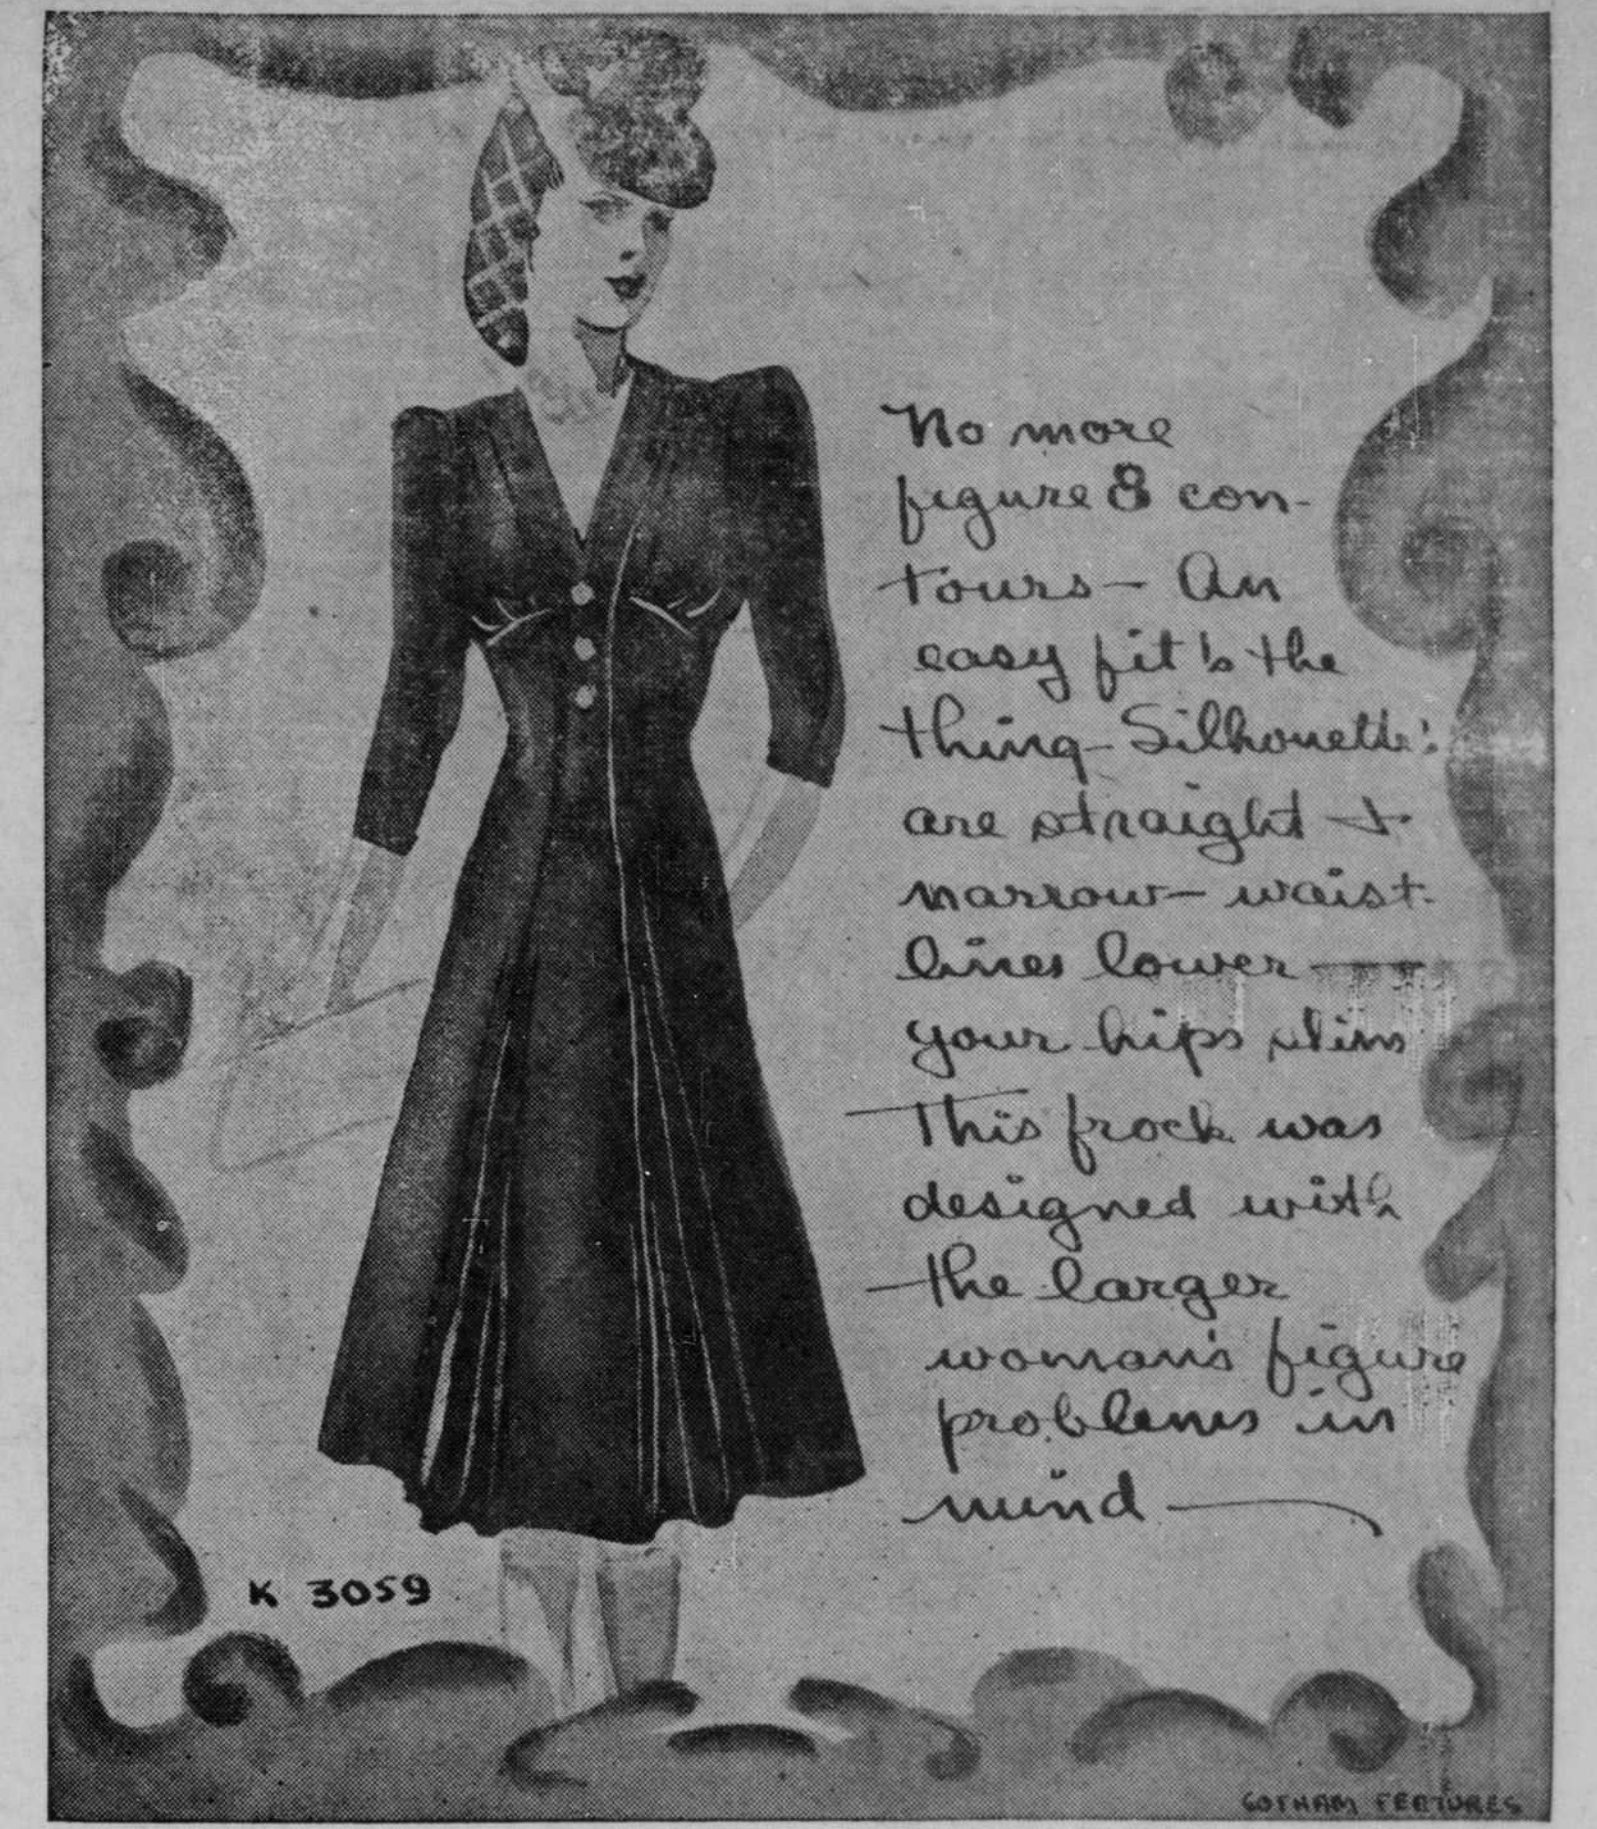 No more
figure 8 con-
tours— An
easy fit's the
thing— Silhouettes
are straight +
narrow— waist-
lines lower —
your hips slim
This frock was
designed with
the larger
woman's figure
problems in
mind —
K 3059
GOTHAM FEATURES